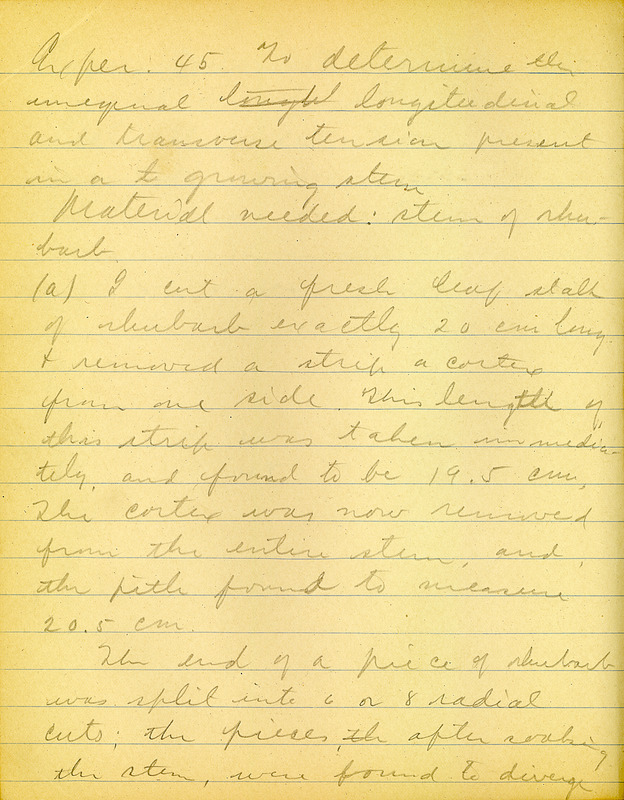 Exper. 45. To determine the
unequal lenght longitudinal
and transverse tension present
in a t growing stem
Material needed: stem of rhu-
barb
(a) I cut a fresh leaf stalk
of rhubarb exactly 20 cm long
& removed a strip a cortex
from one side. This length of
this strip was taken immedia-
tely, and found to be 19.5 cm,
The cortex was now removed
from the entire stem, and,
the pith found to measure
20.5 cm.
The end of a piece of rhubarb
was split into 6 or 8 radial
cuts; the pieces, th after soaking
the stem, were found to diverge